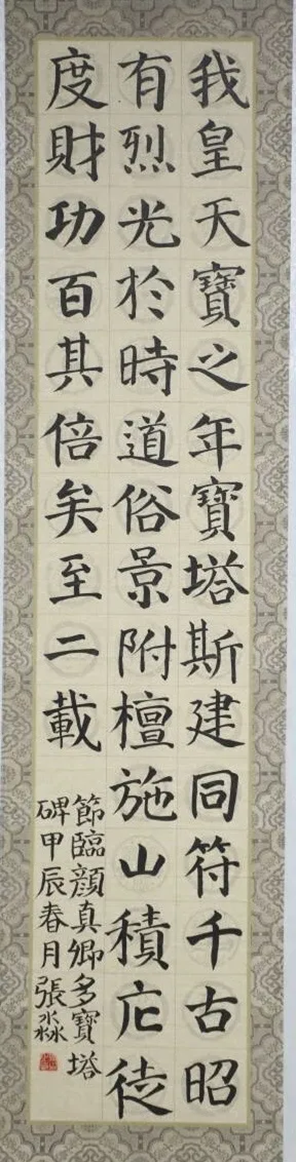 我皇天寶之年寶塔斯建同符千古昭
有烈光於時道俗景附檀施山積庀徒
度財功百其倍矣至二載
節臨顏真卿多寶塔
碑甲辰春月張淼